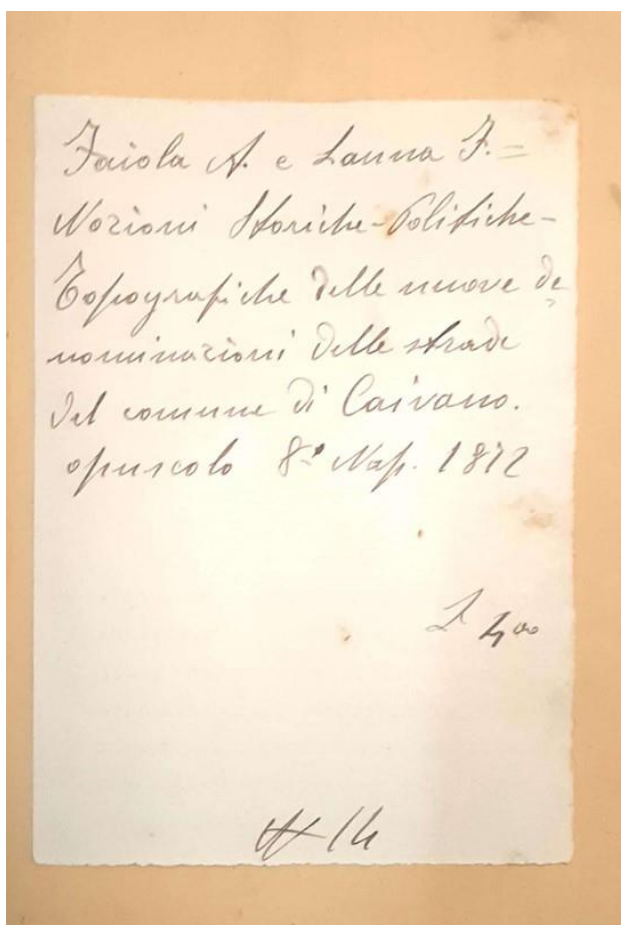 Faiola A. e Lanna F. =
Nozioni Storiche-Politiche-
Topografiche delle nuove de
nominazioni delle strade
del comune di Caivano.
opuscolo 8º Nap. 1872
L 4,00
14